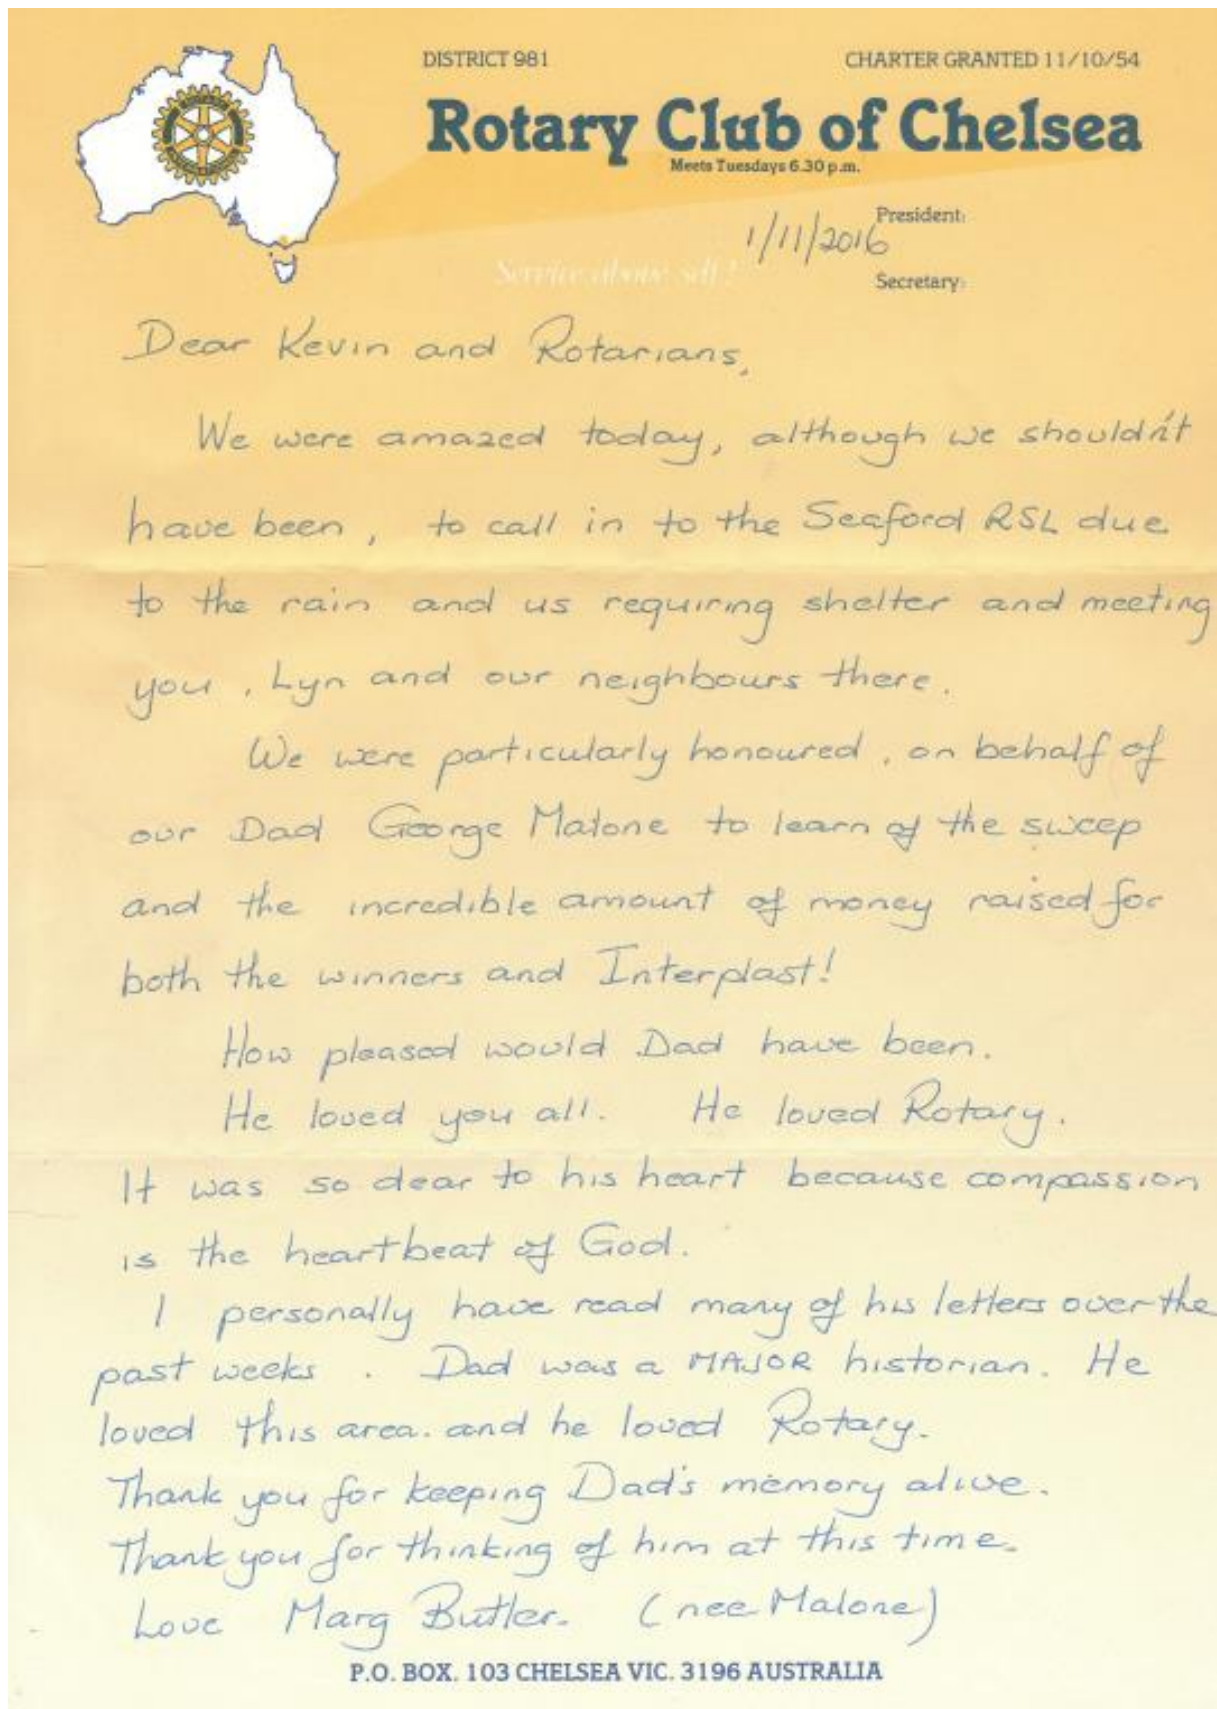 DISTRICT 981 CHARTER GRANTED 11/10/54
Rotary Club of Chelsea
Meets Tuesdays 6.30 p.m.
President:
1/11/2016
Service above self!
Secretary:
Dear Kevin and Rotarians,
We were amazed today, although we shouldn't
have been, to call in to the Seaford RSL due
to the rain and us requiring shelter and meeting
you, Lyn and our neighbours there.
We were particularly honoured, on behalf of
our Dad George Malone to learn of the sweep
and the incredible amount of money raised for
both the winners and Interplast!
How pleased would Dad have been.
He loved you all. He loved Rotary.
It was so dear to his heart because compassion
is the heartbeat of God.
I personally have read many of his letters over the
past weeks. Dad was a MAJOR historian. He
loved this area. and he loved Rotary.
Thank you for keeping Dad's memory alive.
Thank you for thinking of him at this time.
Love Marg Butler. (nee Malone)
P.O. BOX. 103 CHELSEA VIC. 3196 AUSTRALIA